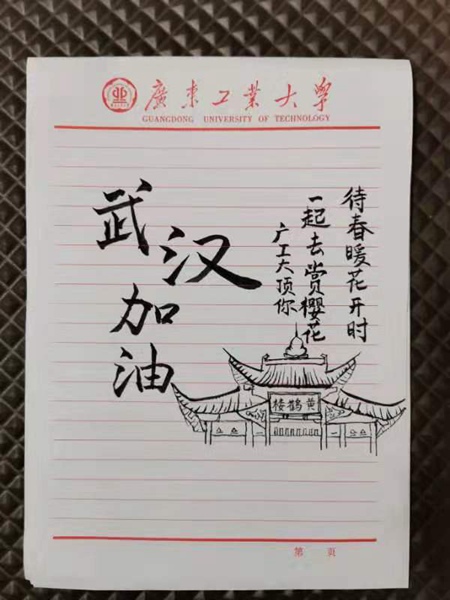 廣東工業大學
GUANGDONG UNIVERSITY OF TECHNOLOGY
武汉
加油
待春暖花开时
一起去赏樱花
广工大顶你
黄鹤楼
第 页